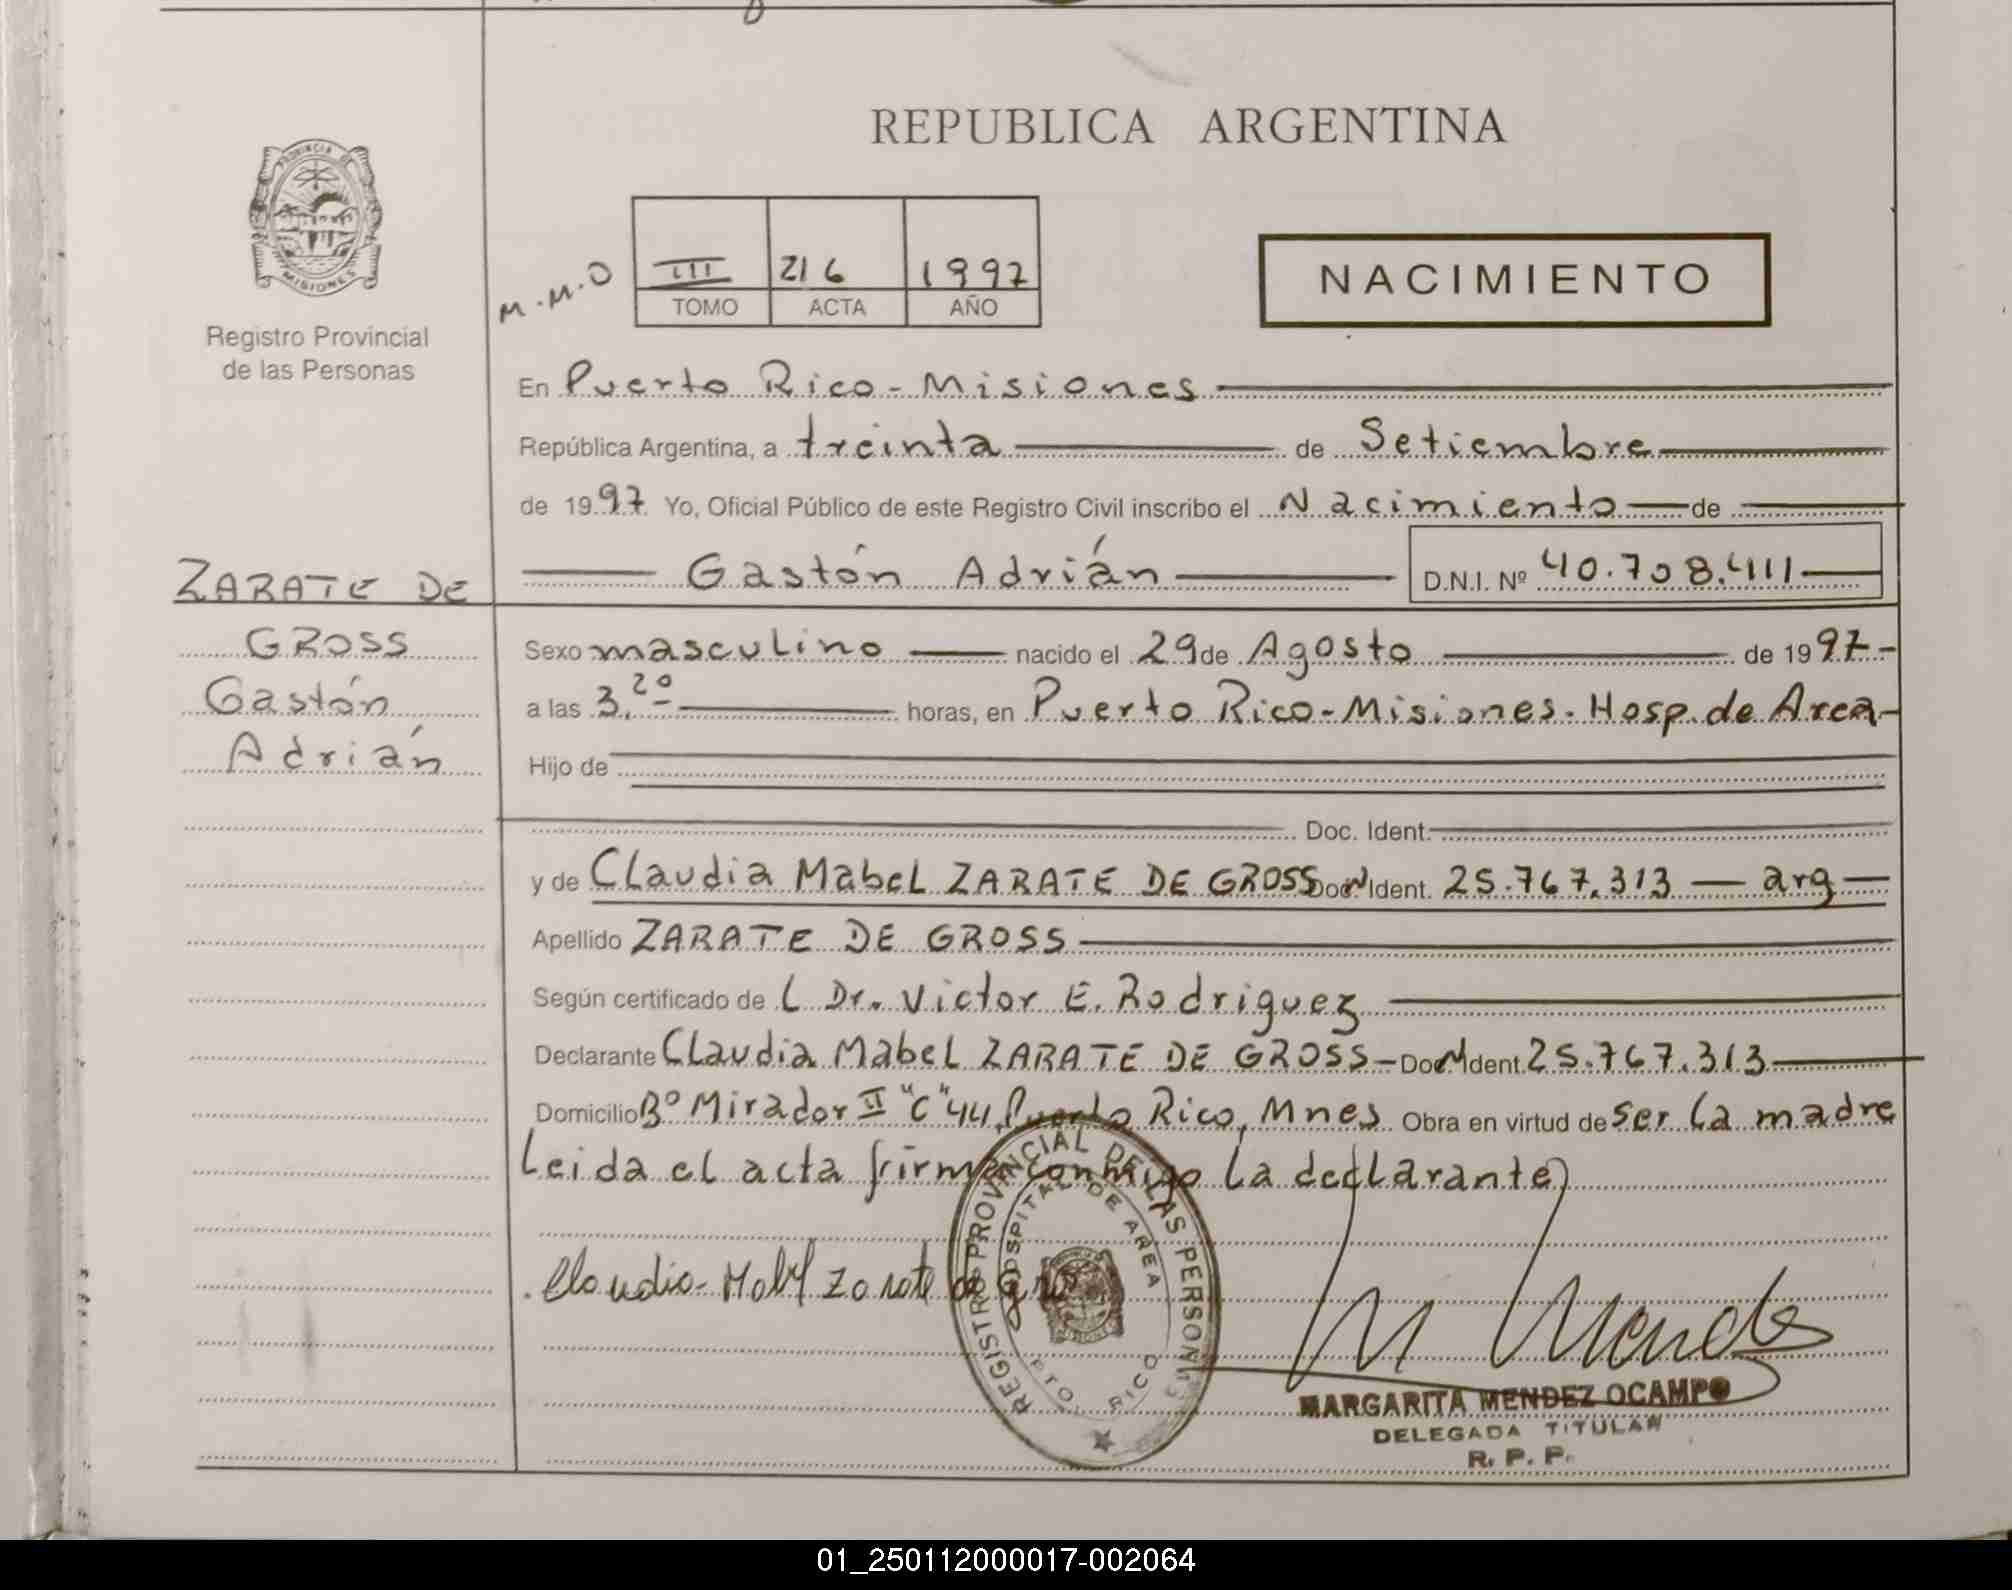 REPUBLICA ARGENTINA
PROVINCIA DE
MISIONES
Registro Provincial
de las Personas
M.M.O
III 216 1997
TOMO ACTA AÑO
NACIMIENTO
En Puerto Rico - Misiones
República Argentina, a treinta de Setiembre
de 1997 Yo, Oficial Público de este Registro Civil inscribo el Nacimiento de
Gastón Adrián D.N.I. Nº 40.708.411
ZARATE DE
GROSS
Gastón
Adrián
Sexo masculino nacido el 29 de Agosto de 1997-
a las 3,20 horas, en Puerto Rico-Misiones. Hosp. de Area-
Hijo de
Doc. Ident.
y de Claudia Mabel ZARATE DE GROSS Doc. Ident. 25.767.313 — arg —
Apellido ZARATE DE GROSS
Según certificado de L Dr. Victor E. Rodriguez
Declarante Claudia Mabel ZARATE DE GROSS - Doc. Ident. 25.767.313
Domicilio Bº Mirador II "C" 44, Puerto Rico, Mnes Obra en virtud de ser la madre
Leida el acta firma conmigo la declarante
Claudia Mabel Zarate de Gross
REGISTRO PROVINCIAL DE LAS PERSONAS
HOSPITAL DE AREA
PTO. RICO
M Mendez
MARGARITA MENDEZ OCAMPO
DELEGADA TITULAR
R. P. P.
01_250112000017-002064